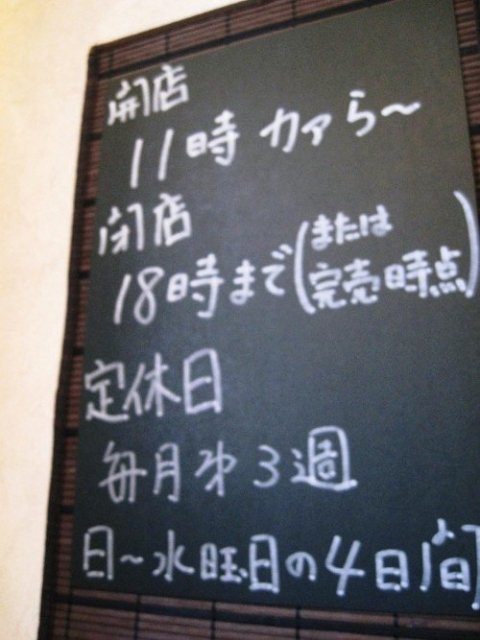 開店
11時 カァら〜
閉店
18時まで(または
完売時点)
定休日
毎月第3週
日〜水曜日の4日間